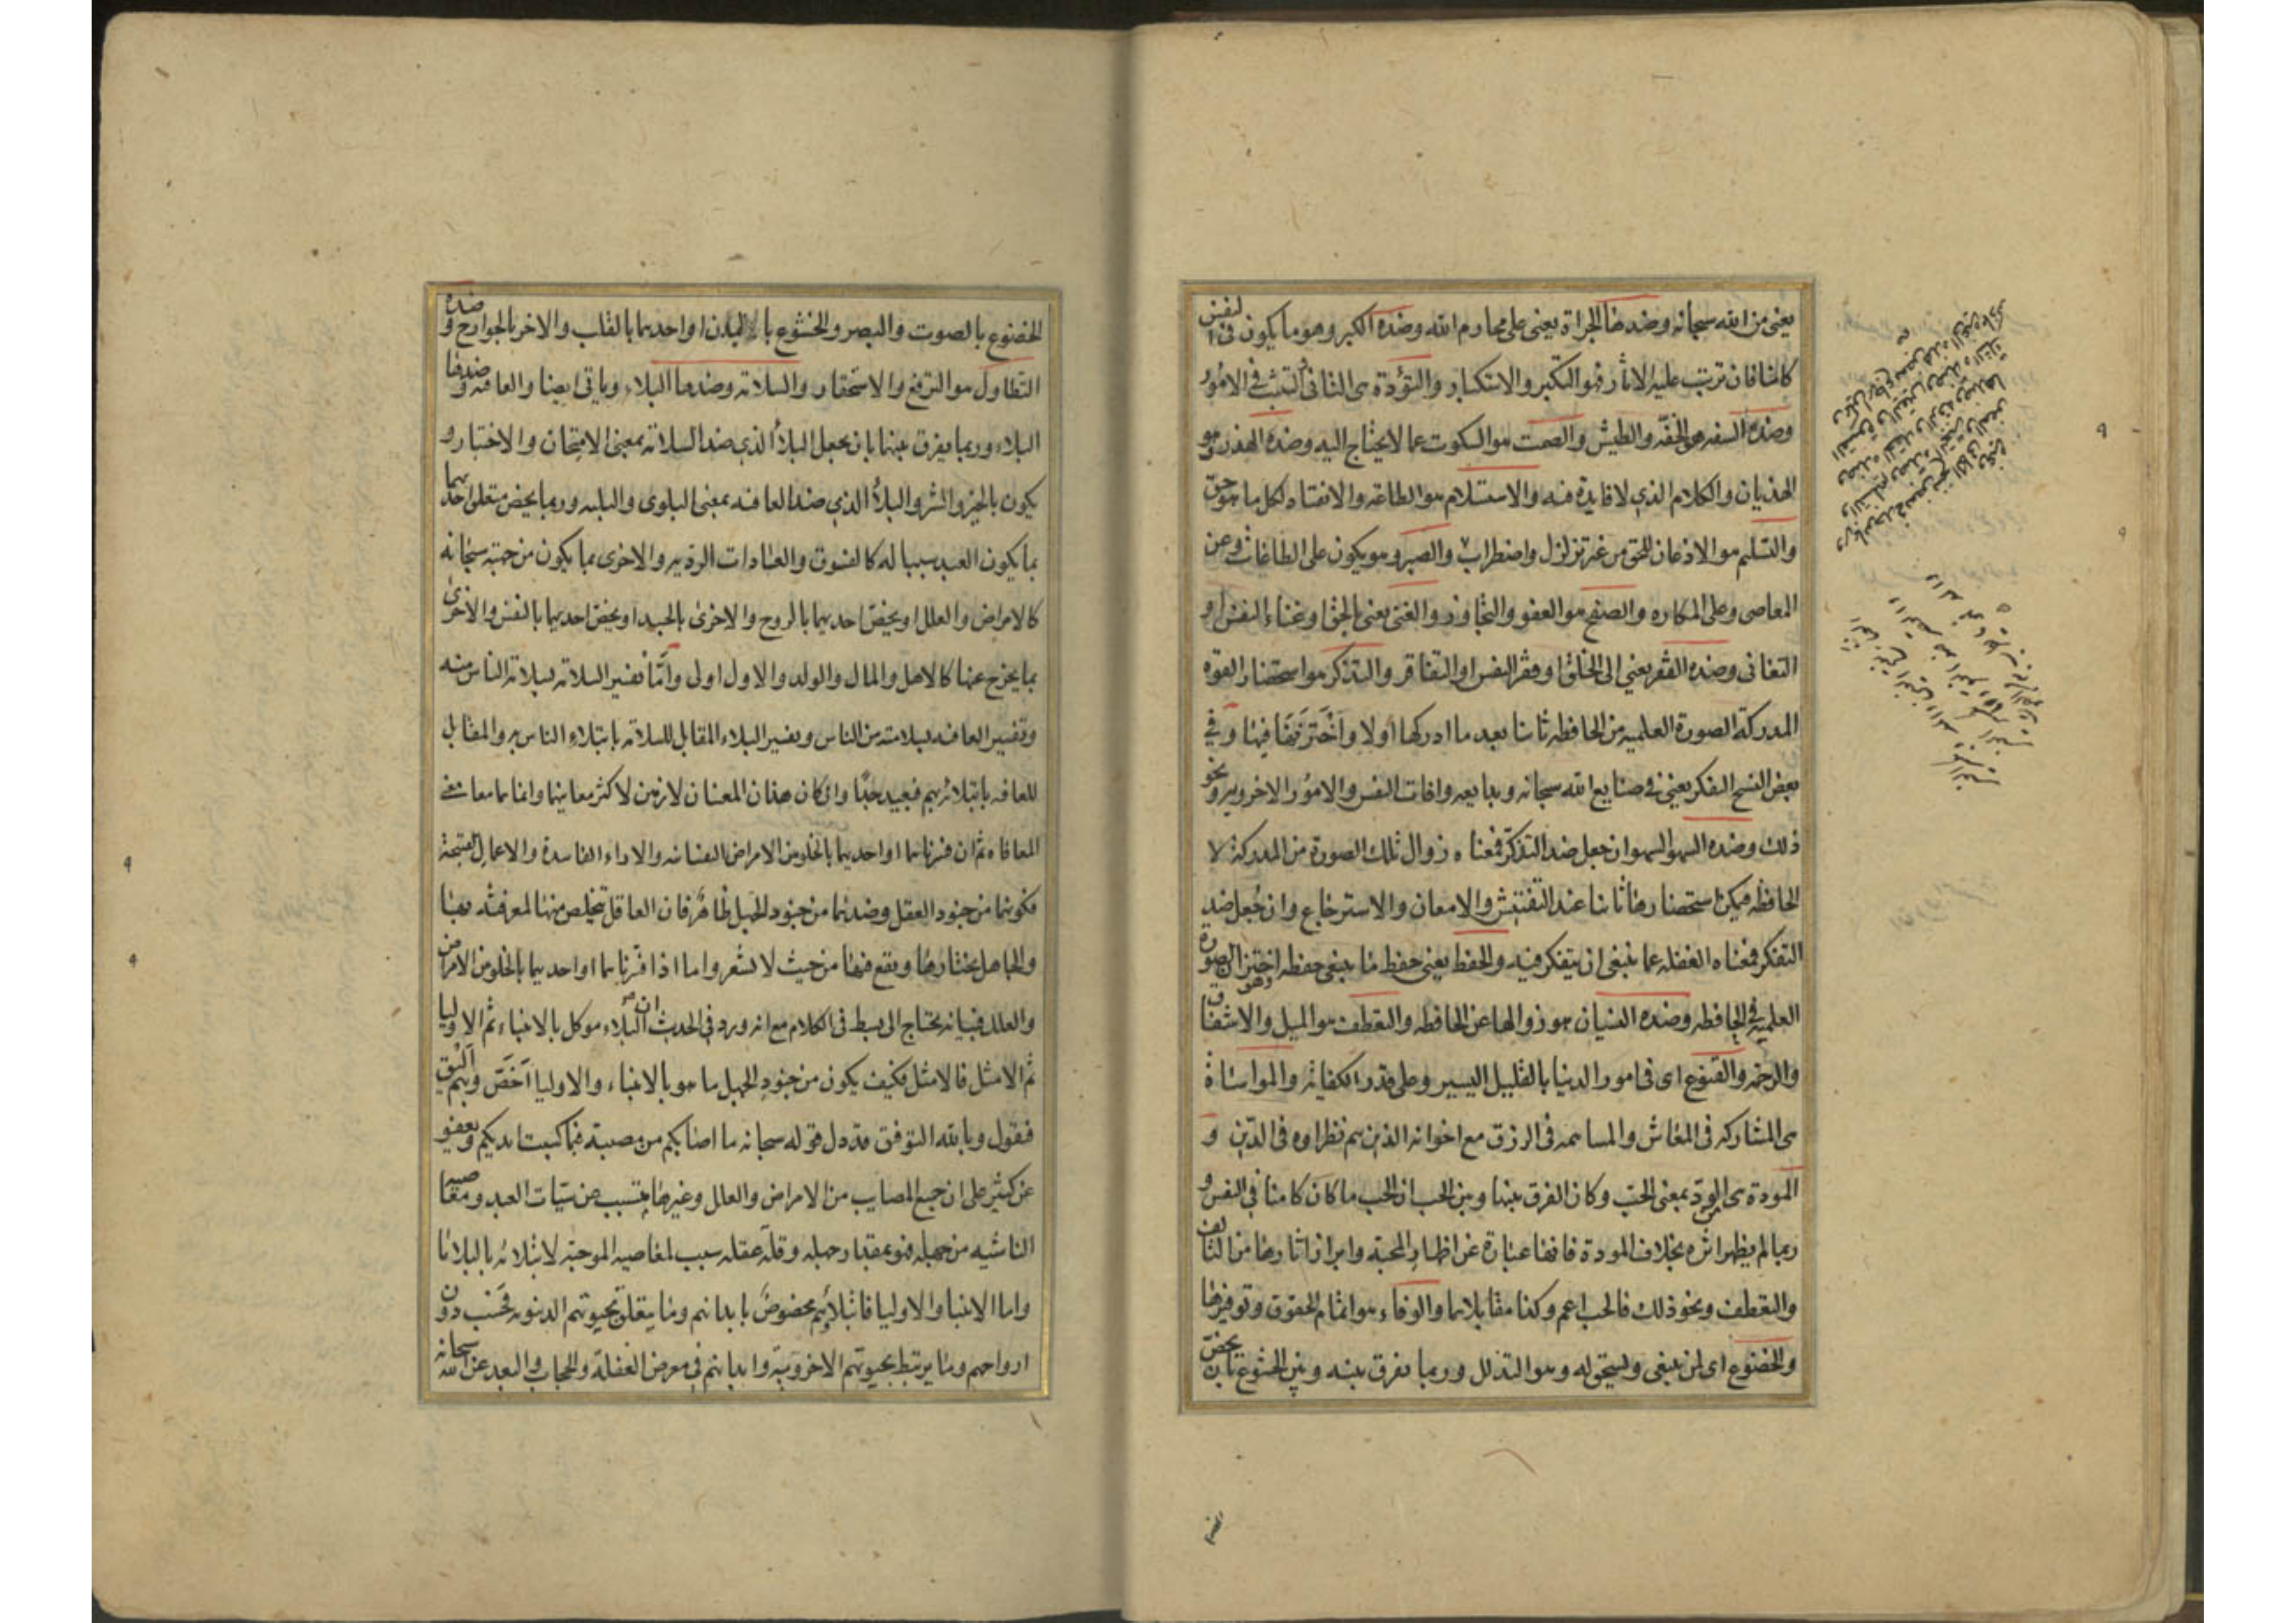 يعنى من الله سبحانه وضدها الجراة يعنى على محارم الله وضده الكبر وهو ما يكون فى النفس
كامنا فان ترتب عليه الاثار فهو التكبر والاستكبار والتؤدة هى التانى والتثبت فى الامور
وضده السفه هى الخفه والطيش والصمت هو السكوت عما لا يحتاج اليه وضده الهذر وهو
الهذيان والكلام الذى لا فايدة فيه والاستسلام هو الطاعة والانقياد لكل ما هو حق
والتسليم هو الاذعان للحق من غير تزلزل واضطراب والصبر وهو يكون على الطاعات وعن
المعاصى وعلى المكاره والصفح هو العفو والتجاوز والغنى يعنى بالحق او غناء النفس او
التغانى وضده الفقر يعنى الى الخلق او فقر النفس او التفاقر والتذكر هو استحضار القوه
المدركة الصورة العلميه من الحافظه ثانيا بعد ما ادركها اولا واختزنها فيها وفى
بعض النسخ التفكر يعنى فى صنايع الله سبحانه وبدايعه وافات النفس والامور الاخرويه ونحو
ذلك وضده السهو السهو ان جعل ضد التذكر فمعناه زوال تلك الصورة من المدركة لا
الحافظه فيمكن استحضارها ثانيا عند التفتيش والامعان والاسترجاع وان جعل ضد
التفكر فمعناه الغفله عما ينبغى ان يتفكر فيه والحفظ يعنى حفظ ما ينبغى حفظه اختزان الصورة
العلميه فى الحافظه وضده النسيان وهو زوالها عن الحافظه والتعطف هو الميل والاشفاق
والرحمه والقنوع اى فى امور الدنيا بالقليل اليسير وعلى قدر الكفاية والمواساة
هى المشاركه فى المعاش والمساهمه فى الرزق مع اخوانه الذين هم نظراوه فى الدين و
المودة هى الود بمعنى الحب وكان الفرق بينها وبين الحب ان الحب ما كان كامنا فى النفس و
ربما لم يظهر اثره بخلاف المودة فانها عبارة عن اظهار المحبة وابراز اثارها من التالف
والتعطف ونحو ذلك فالحب اعم وكذا مقابلاهما والوفاء هو اتمام الحقوق وتوفيرها
والخضوع اى لمن ينبغى ويستحق له وهو التذلل وربما يفرق بينه وبين الخشوع بان يخص
الخضوع بالصوت والبصر والخشوع بالبدن او احديهما بالقلب والاخر بالجوارح وضده
التطاول هو الترفع والاستحقار والسلامة وضدها البلاء وياتى ايضا والعافيه وضدها
البلاء وربما يفرق بينهما بان يجعل البلاء الذى ضد السلامة بمعنى الامتحان والاختبار و
يكون بالخير والشر والبلاء الذى ضد العافيه بمعنى البلوى والبليه وربما يخص متعلق احديهما
بما يكون العبد سببا له كالفسوق والعادات الرديه والاخرى بما يكون من جهته سبحانه
كالامراض والعلل او يخص احديهما بالروح والاخرى بالجسد او يخص احديهما بالنفس والاخرى
بما يخرج عنها كالاهل والمال والولد والاول اولى واما تفسير السلامة بسلامة الناس منه
وتفسير العافيه بسلامته من الناس وتفسير البلاء المقابل للسلامة بابتلاء الناس به والمقابل
للعافيه بابتلائه بهم فبعيد جدا وان كان هذان المعنيان لازمين لاكثر معانيها وانما هما معا معنى
المعافاه ثم ان فسرناهما او احديهما بالخلو من الامراض النفسانيه والاراء الفاسدة والاعمال القبيحة
فكونهما من جنود العقل وضديهما من جنود الجهل ظاهر فان العاقل يتخلص منها لمعرفته بها
والجاهل يختارها ويقع فيها من حيث لا يشعر واما اذا فسرناهما او احديهما بالخلو من الامراض
والعلل فبيانه يحتاج الى بسط فى الكلام مع انه ورد فى الحديث ان البلاء موكل بالانبياء ثم الاوليا
ثم الامثل فالامثل فكيف يكون من جنود الجهل ما هو بالانبياء والاوليا اخص وبهم اليق
فنقول وبالله التوفيق قد دل قوله سبحانه ما اصابكم من مصيبة فبما كسبت ايديكم ويعفو
عن كثير على ان جميع المصايب من الامراض والعلل وغيرها يتسبب عن سيات العبد ومعاصيه
الناشيه من جهله فهو بمقدار جهله وقلة عقله سبب لمعاصيه الموجبة لابتلائه بالبلايا
واما الانبيا والاوليا فابتلاؤهم مخصوص بابدانهم وما يتعلق بحيوتهم الدنيويه فحسب دون
ارواحهم وما يرتبط بحيوتهم الاخروية وابدانهم فى معرض الغفلة والحجاب والبعد عن الله سبحانه